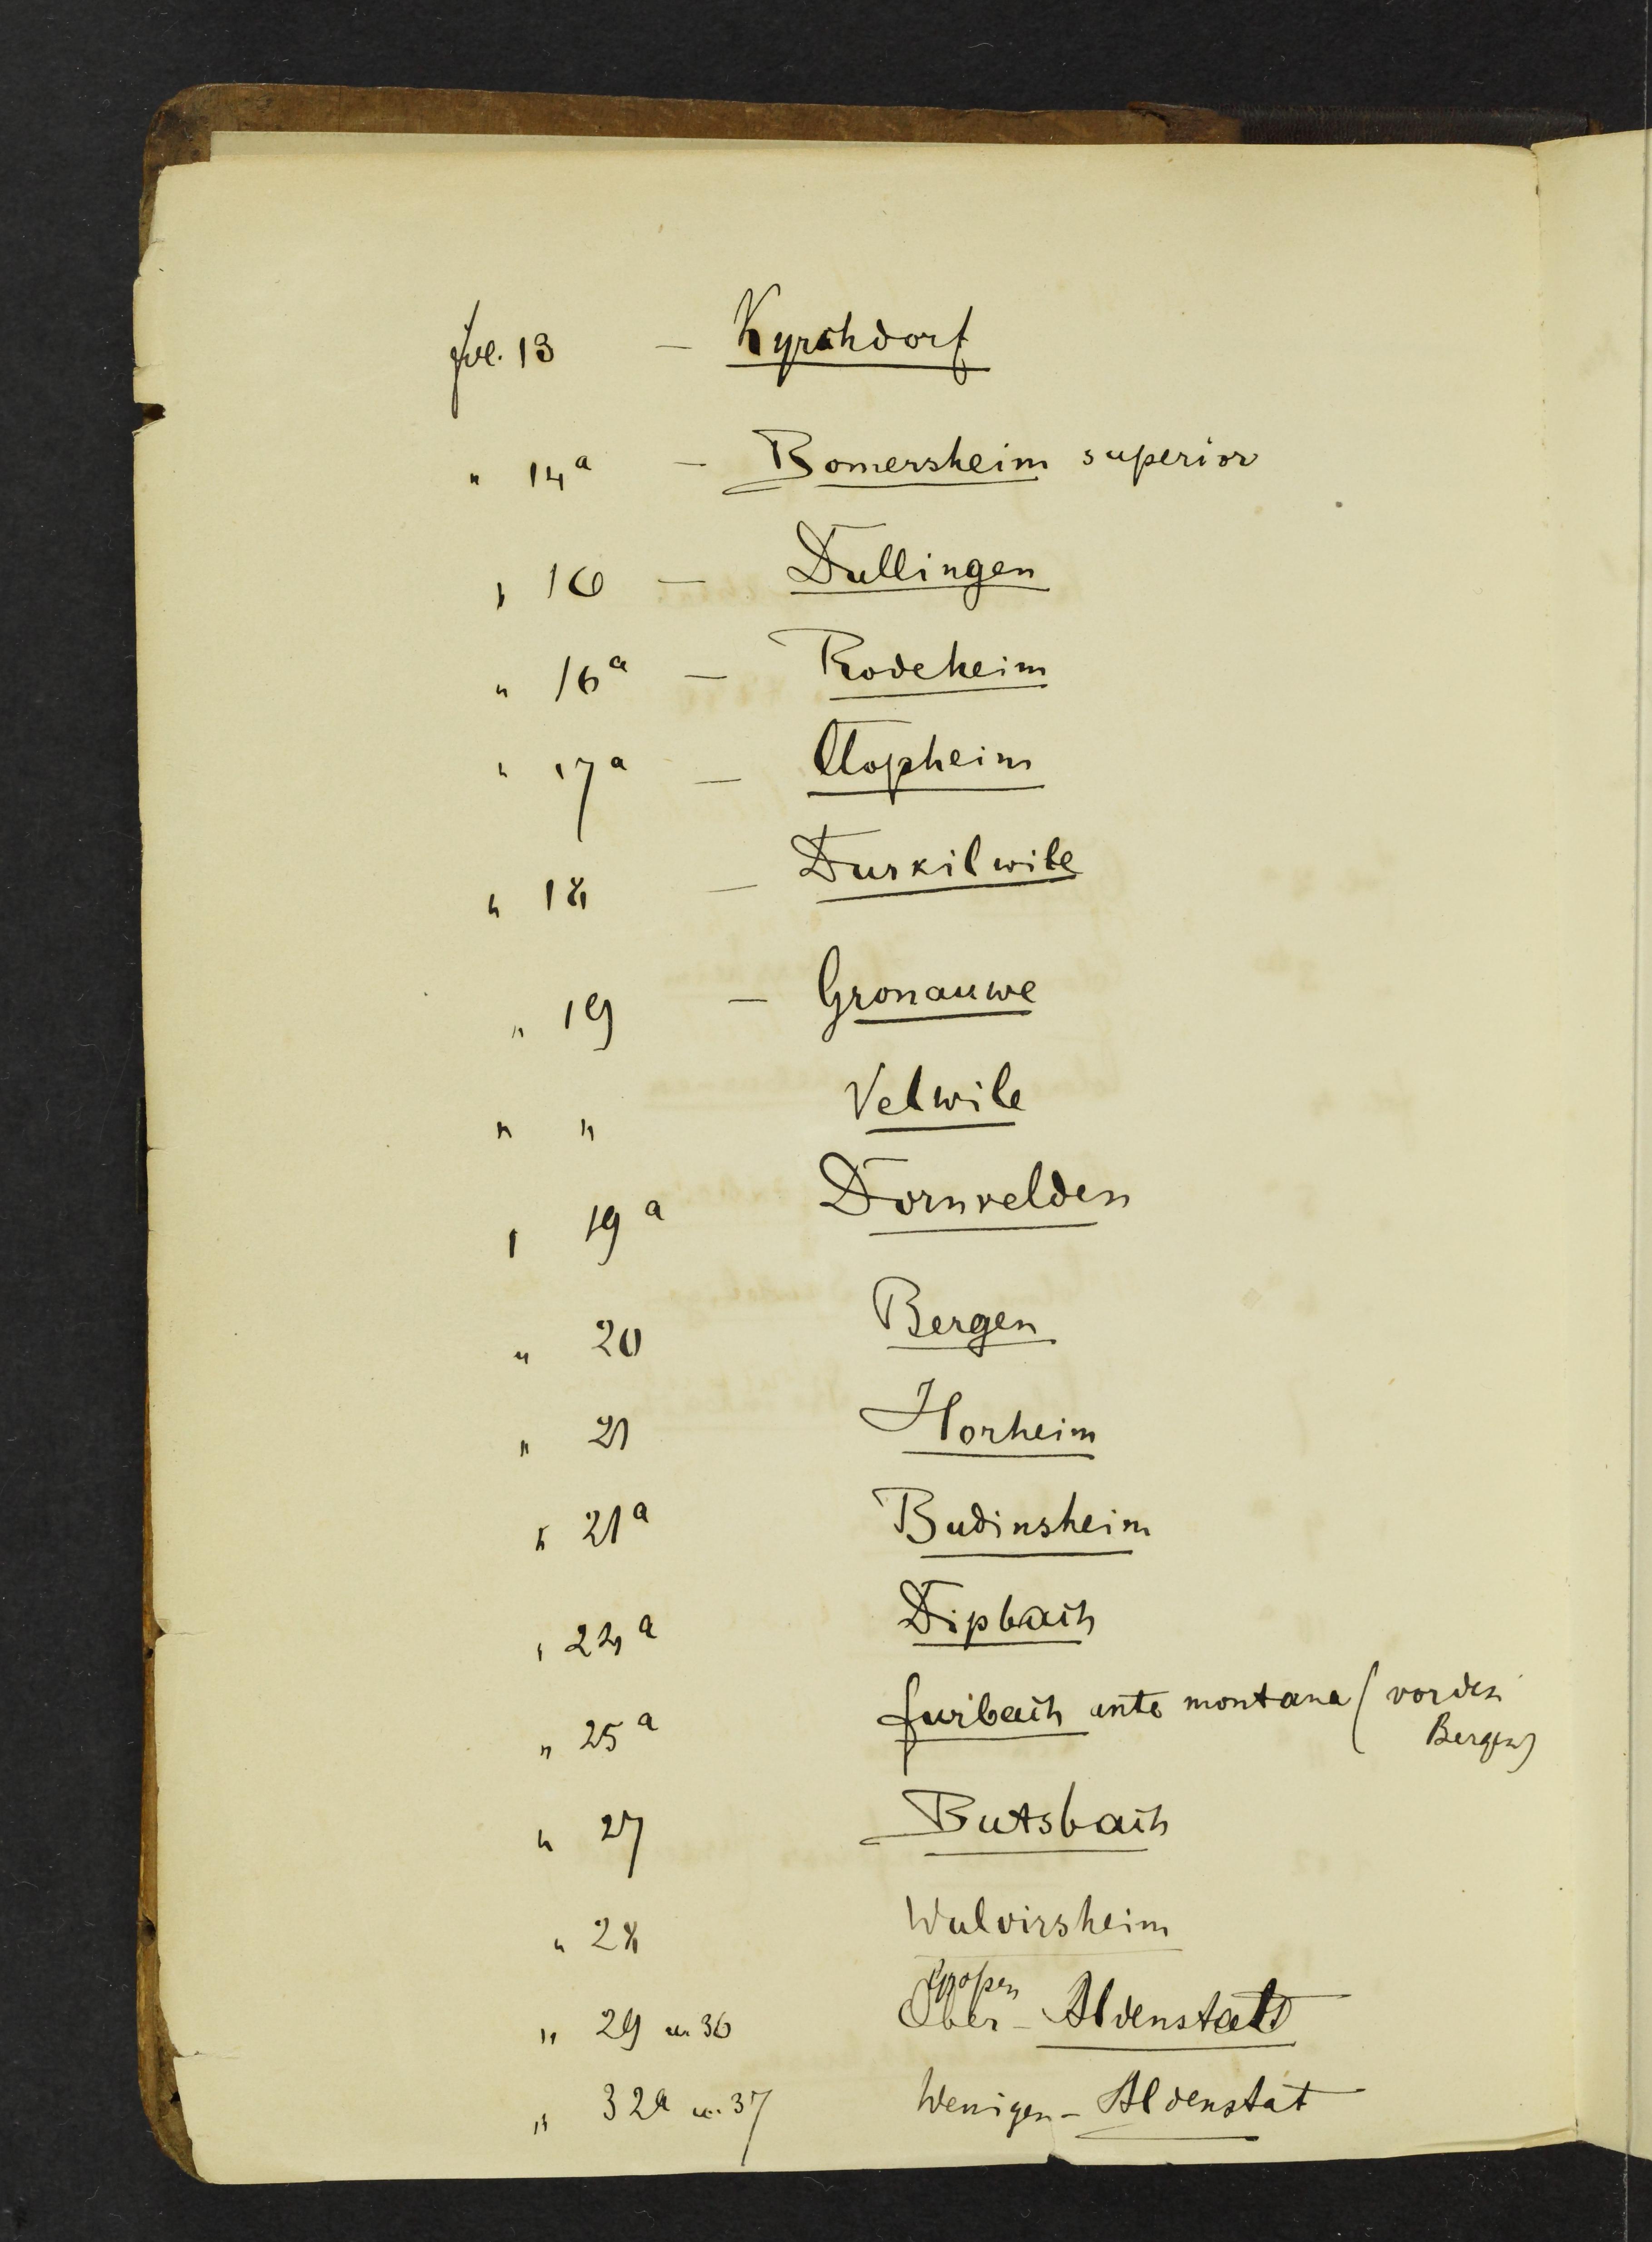 fol. 13 — Kyrchdorf
" 14a — Bomersheim superior
" 16 — Dullingen
" 16a — Rodeheim
" 17a — Clopheim
" 18 — Durkilwile
" 19 — Gronauwe
" " Velwile
" 19a Dornvelden
" 20 Bergen
" 21 Horheim
" 21a Budinsheim
" 24a Dipbach
" 25a furbach ante montana (vor den
Bergen)
" 27 Butsbach
" 28 Wulvirsheim
Großen
" 29 u 36 Ober - Aldenstatt
" 32a u. 37 Wenigen - Aldenstat